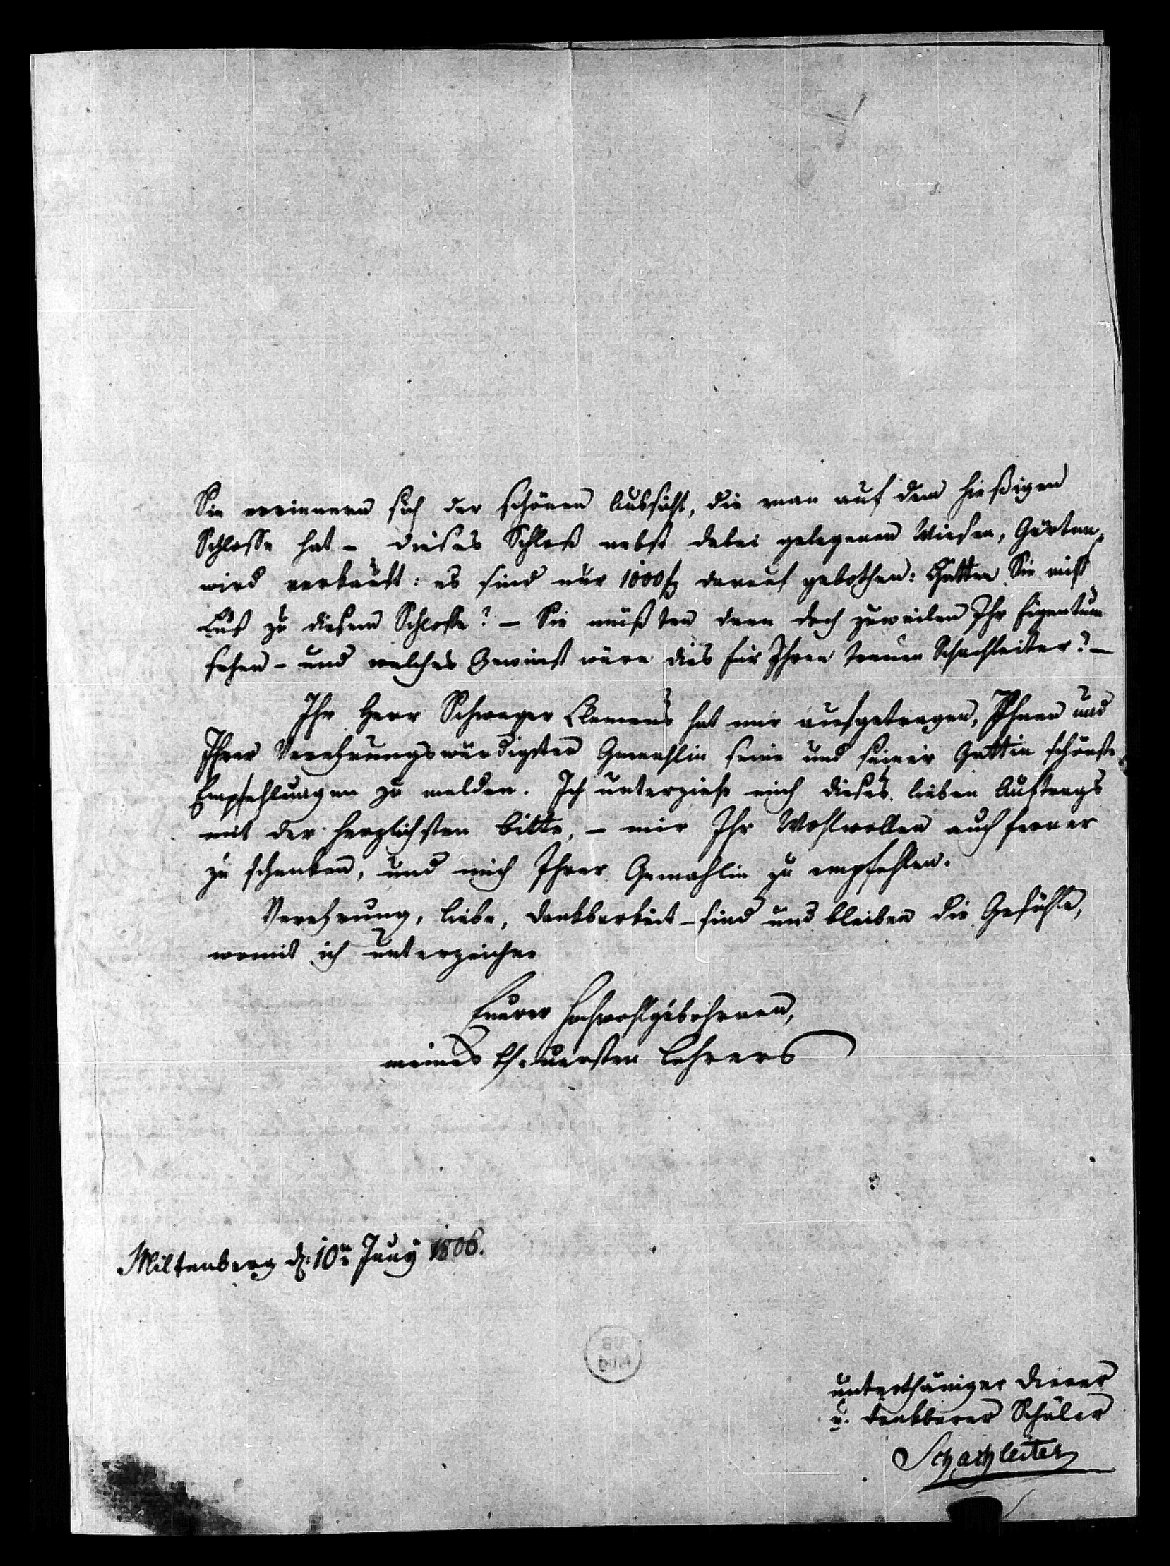 Sie erinnern sich der schönen Aussicht, die man auf dem hießigen
Schlosse hat – dieses Schloß nebst dabei gelegenen Wiesen, Gärten,
wird verkauft: es sind nur 1000 f darauf gebothen: Hätten Sie nicht
Lust zu diesem Schlosse? – Sie müßten dann doch zuweilen Ihr Eigentum
sehen – und welches Gewinst wäre dies für Ihren treuen Schachleiter? –
Ihr Herr Schwager Clemens hat mir aufgetragen, Ihnen und
Ihrer Verehrungswürdigsten Gemahlin seine und seiner Gattin schönste
Empfehlungen zu melden. Ich unterziehe mich dieses lieben Auftrags
mit der herzlichsten Bitte, – mir Ihr Wohlwollen auch ferner
zu schenken, und mich Ihrer Gemahlin zu empfehlen.
Verehrung, Liebe, Dankbarkeit – sind und bleiben die Gefühle,
womit ich unterzeichne
Euerer Hochwohlgebohrnen,
meines theuersten Lehrers
Miltenberg d. 10n Juny 1806.
unterthäniger Diener
u. dankbarer Schüler
Schachleiter